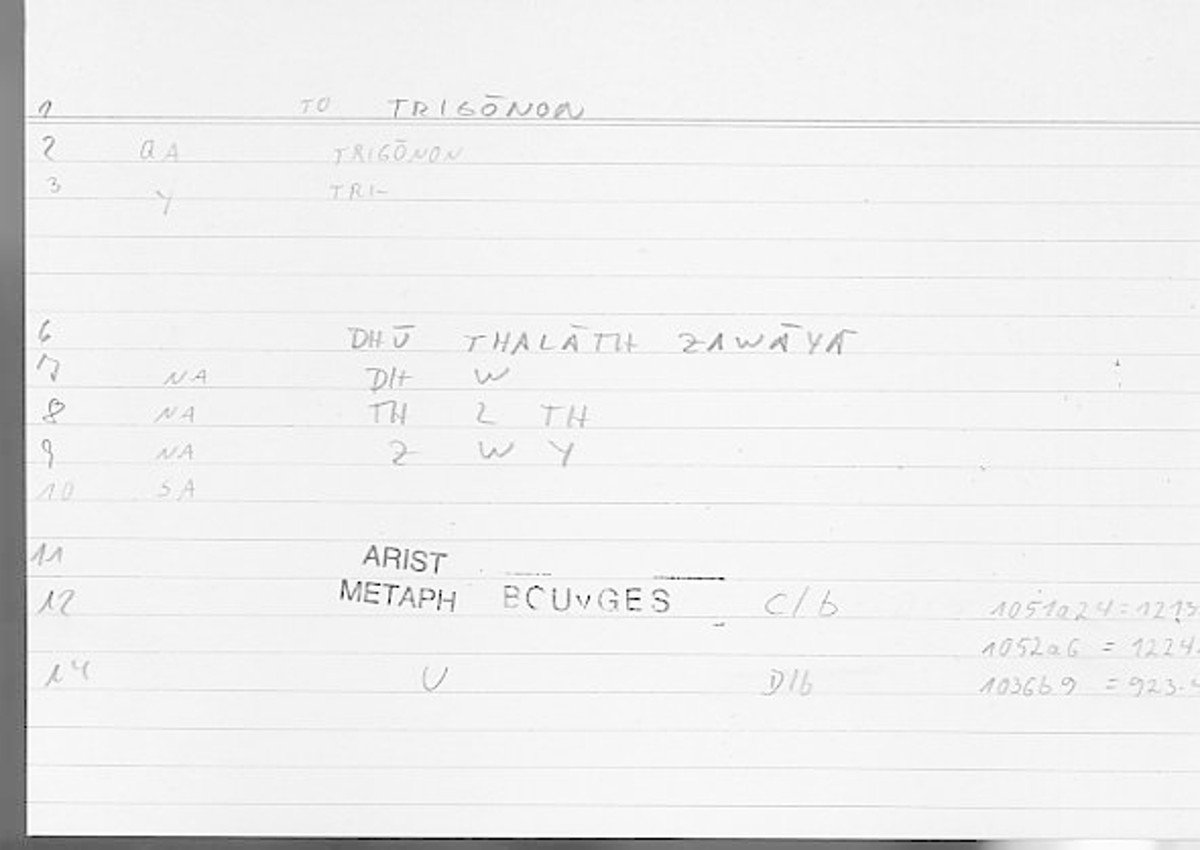 1 TO TRIGŌNON
2 aA TRIGŌNON
3 Y TRI-
6 DHŪ THALĀTH ZAWĀYĀ
7 NA DH W
8 NA TH L TH
9 NA Z W Y
10 SA
11 ARIST
12 METAPH BOUvGES C/b 1051a24=1213
1052a6 = 1224.
14 U D/b 1036b9 = 923.